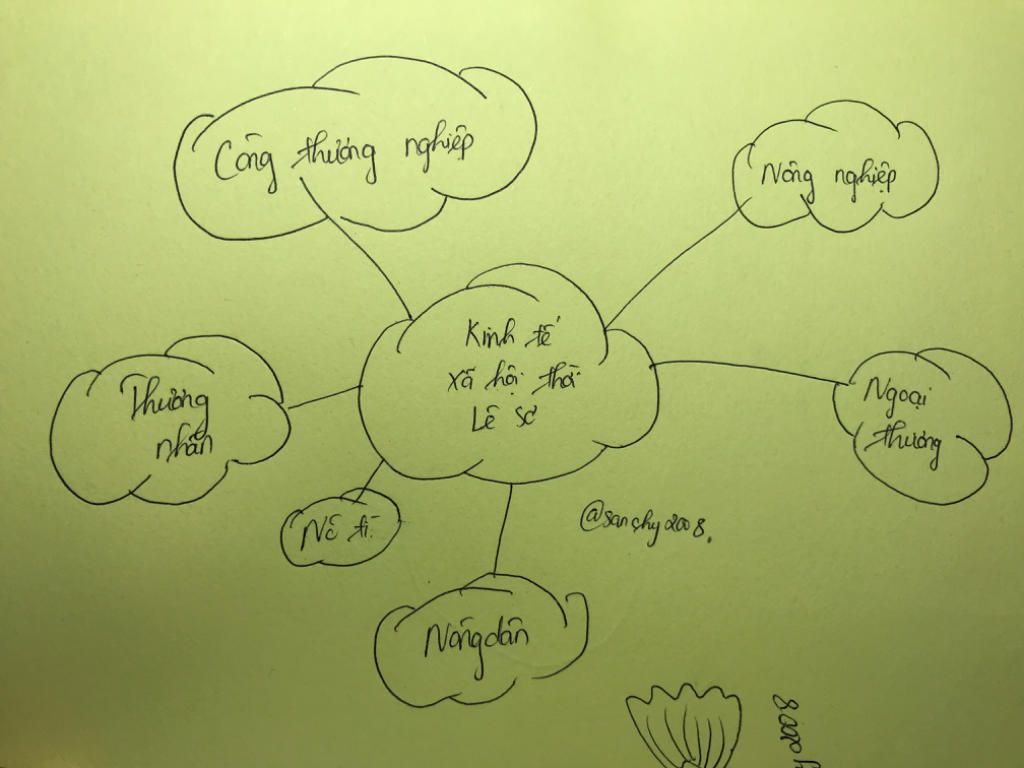 Công thương nghiệp
Nông nghiệp
Kinh tế
xã hội thời
Lê sơ
Thương
nhân
Ngoại
thương
Nô tì.
@sanchy2008.
Nông dân